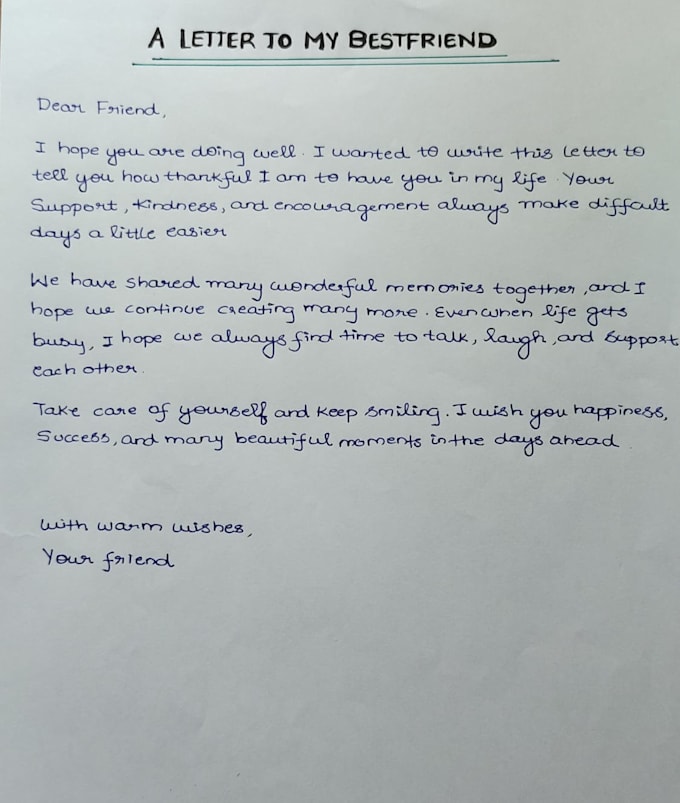 A LETTER TO MY BESTFRIEND
Dear Friend,
I hope you are doing well. I wanted to write this letter to
tell you how thankful I am to have you in my life. Your
Support, kindness, and encouragement always make diffcult
days a little easier
We have shared many wonderful memories together, and I
hope we continue creating many more. Even when life gets
busy, I hope we always find time to talk, laugh, and support
each other.
Take care of yourself and keep smiling. I wish you happiness,
Success, and many beautiful moments in the days ahead.
With warm wishes,
Your friend